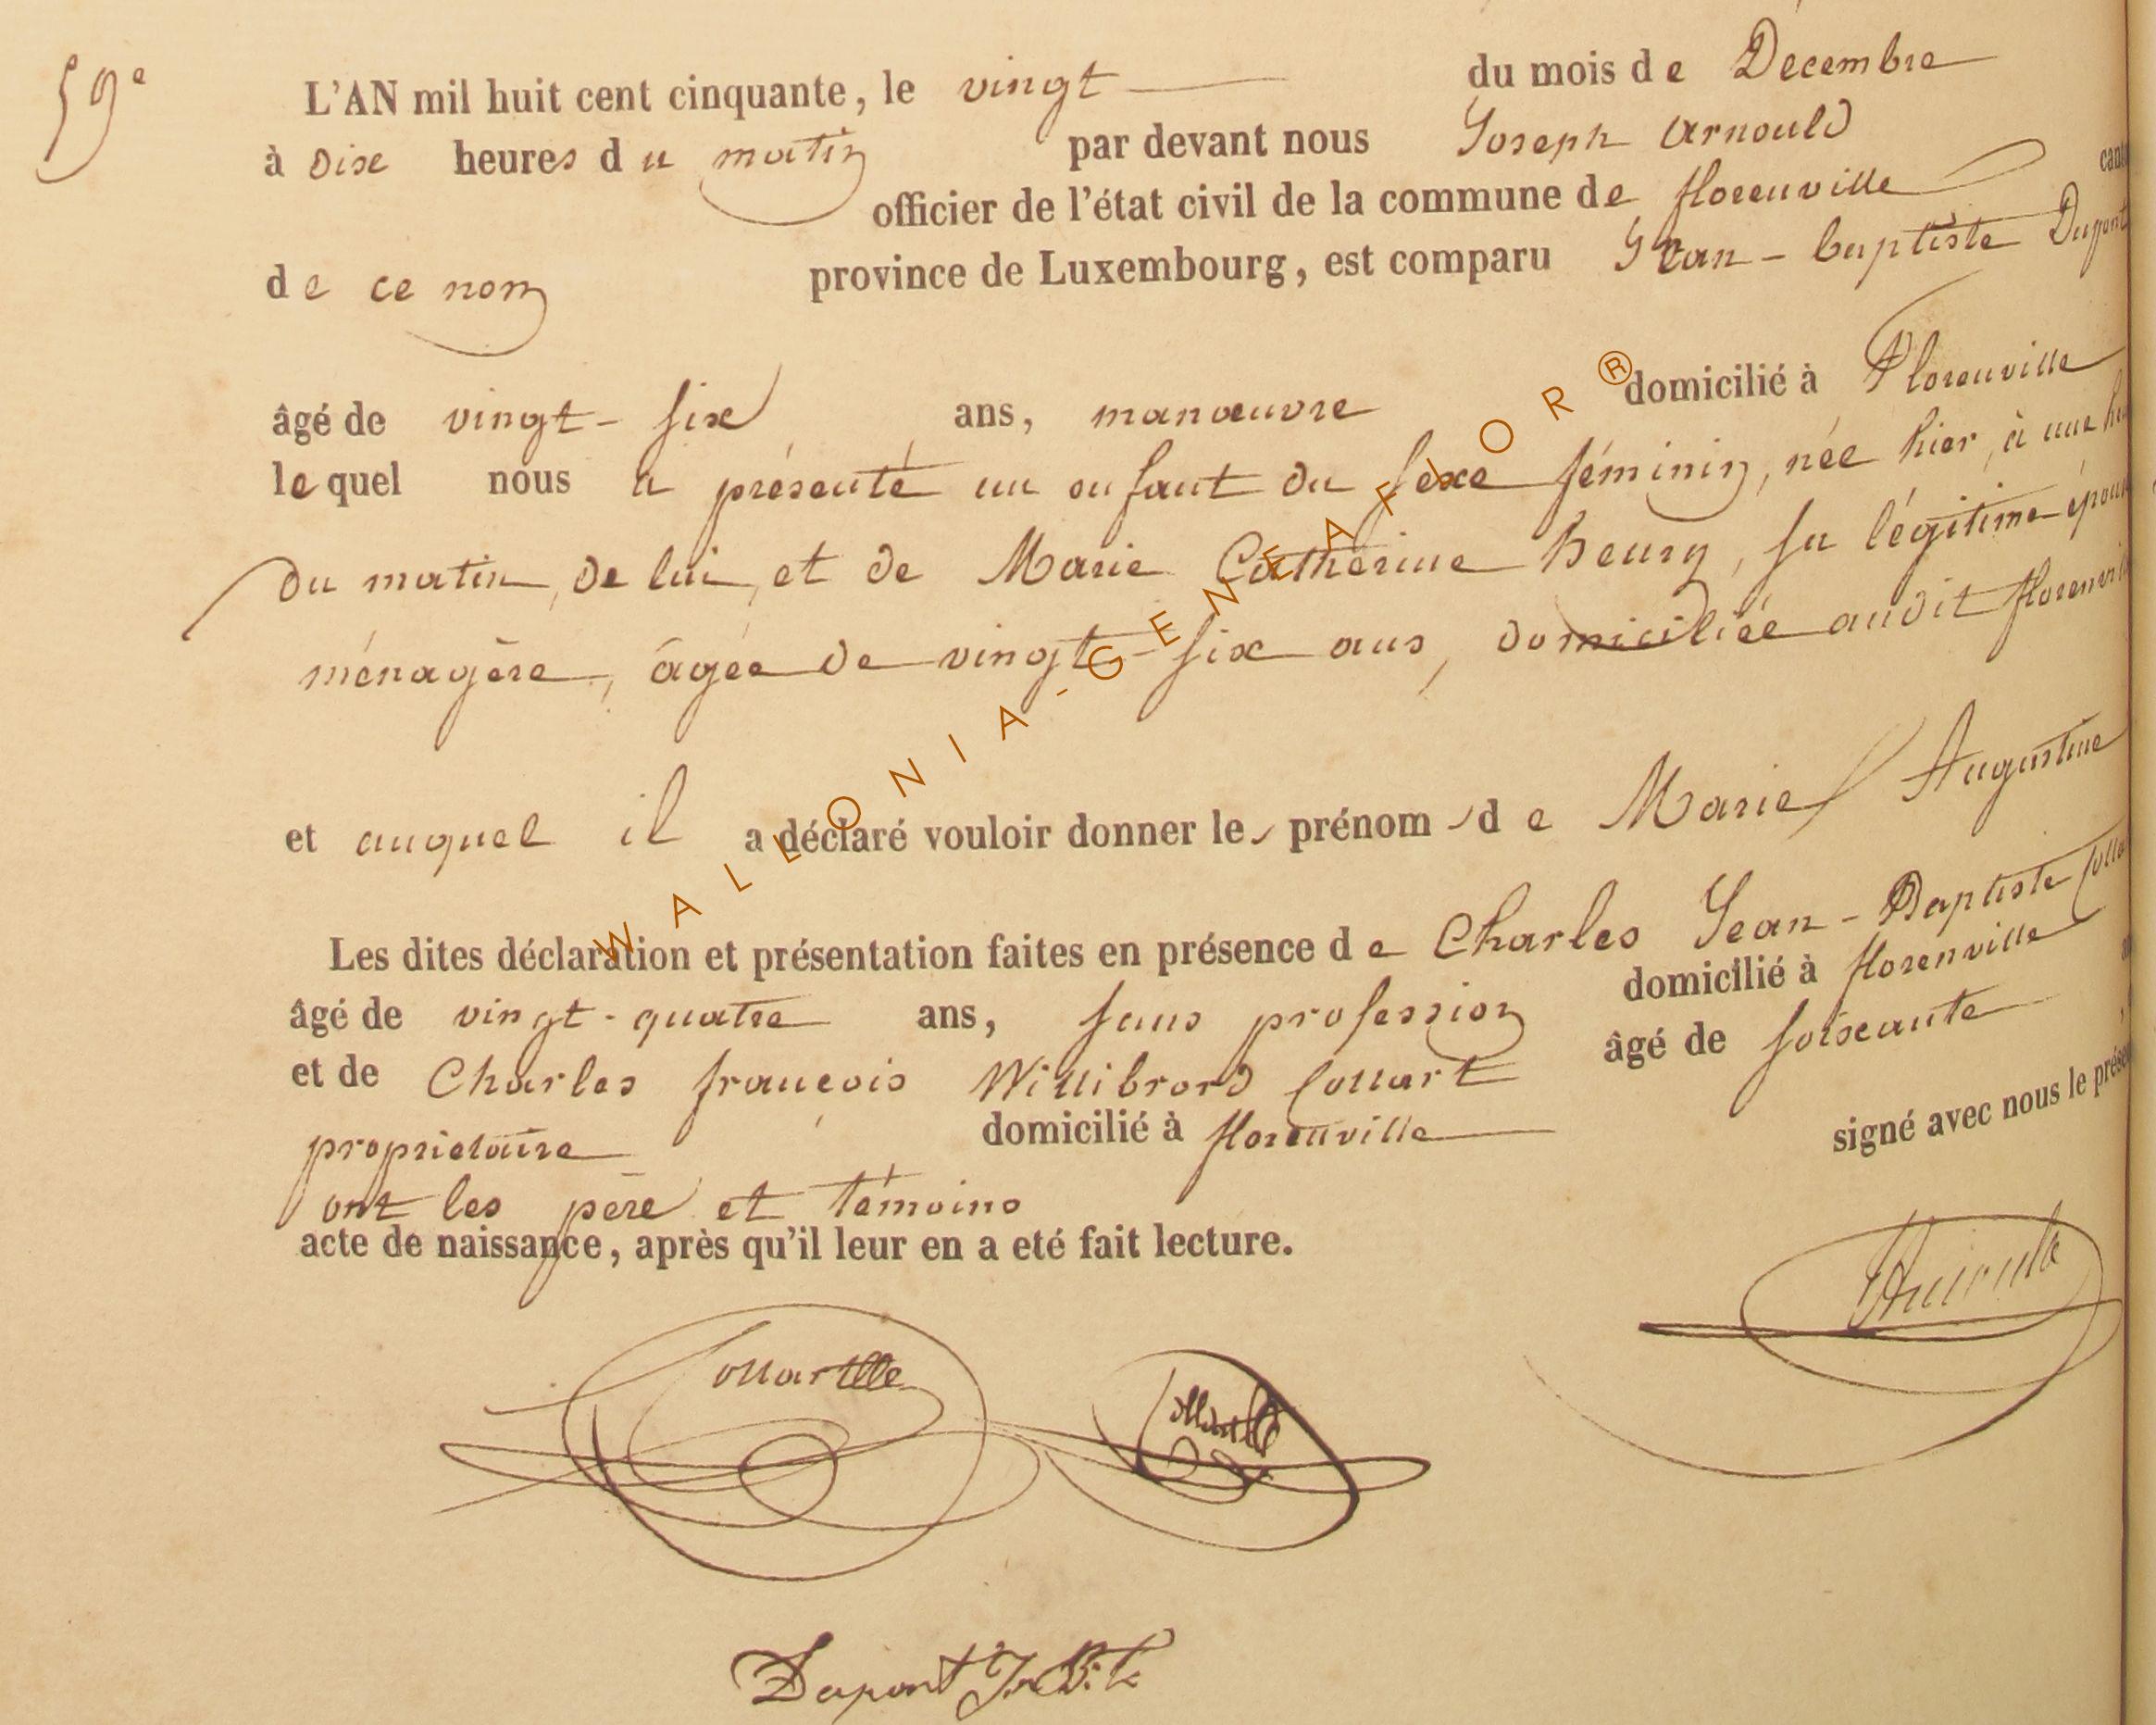 59e
L'AN mil huit cent cinquante, le vingt du mois de Décembre
à dix heures du matin par devant nous Joseph Arnould
officier de l'état civil de la commune de florenville
de ce nom province de Luxembourg, est comparu Jean-baptiste Dupont
âgé de vingt-six ans, manœuvre domicilié à Florenville
lequel nous a présenté un enfant du sexe féminin, née hier, à une
du matin, de lui, et de Marie Catherine henry, sa légitime
ménagère, âgée de vingt-six ans, domiciliée audit
et auquel il a déclaré vouloir donner les prénoms de Marie Augustine
Les dites déclaration et présentation faites en présence de Charles Jean-Baptiste
âgé de vingt-quatre ans, sans profession domicilié à florenville
et de Charles françois Willibrord Collart âgé de soixante
propriétaire domicilié à florenville
ont les père et témoins signé avec nous le
acte de naissance, après qu'il leur en a eté fait lecture.
Dupont
WALLONIA-GENEAFLOR®